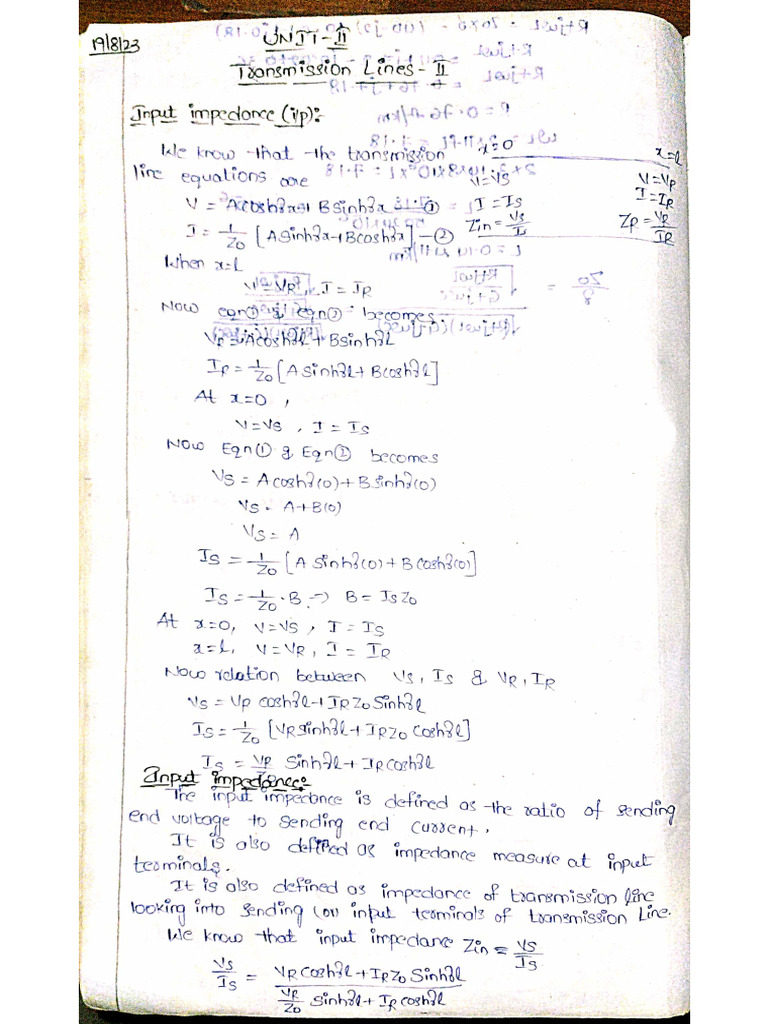 19/8/23
UNIT-II
Transmission Lines-II
Input impedance (i/p):-
We know that the transmission
line equations are
V = A coshγx + B sinhγx - ①
I = 1/Z0 [A sinhγx + B coshγx] - ②
x=0
V=VS
I = IS
Zin = VS/IS
x=l
V=VR
I=IR
ZR = VR/IR
When x=l
V=VR, I = IR
Now eqn① & eqn② becomes
VR = A coshγl + B sinhγl
IR = 1/Z0 [A sinhγl + B coshγl]
At x=0,
V=VS, I = IS
Now Eqn① & Eqn② becomes
VS = A coshγ(0) + B sinhγ(0)
VS = A+B(0)
VS = A
IS = 1/Z0 [A sinhγ(0) + B coshγ(0)]
IS = 1/Z0 · B → B = ISZ0
At x=0, V=VS, I = IS
x=l, V=VR, I = IR
Now relation between VS, IS & VR, IR
VS = VR coshγl + IRZ0 Sinhγl
IS = 1/Z0 [VR sinhγl + IRZ0 Coshγl]
IS = VR/Z0 Sinhγl + IR coshγl
Input impedance:-
The input impedance is defined as the ratio of sending
end voltage to sending end current.
It is also defined as impedance measure at input
terminals.
It is also defined as impedance of transmission line
looking into sending (or) input terminals of transmission Line.
We know that input impedance Zin = VS/IS
VS/IS = (VR Coshγl + IRZ0 Sinhγl) / (VR/Z0 Sinhγl + IR coshγl)